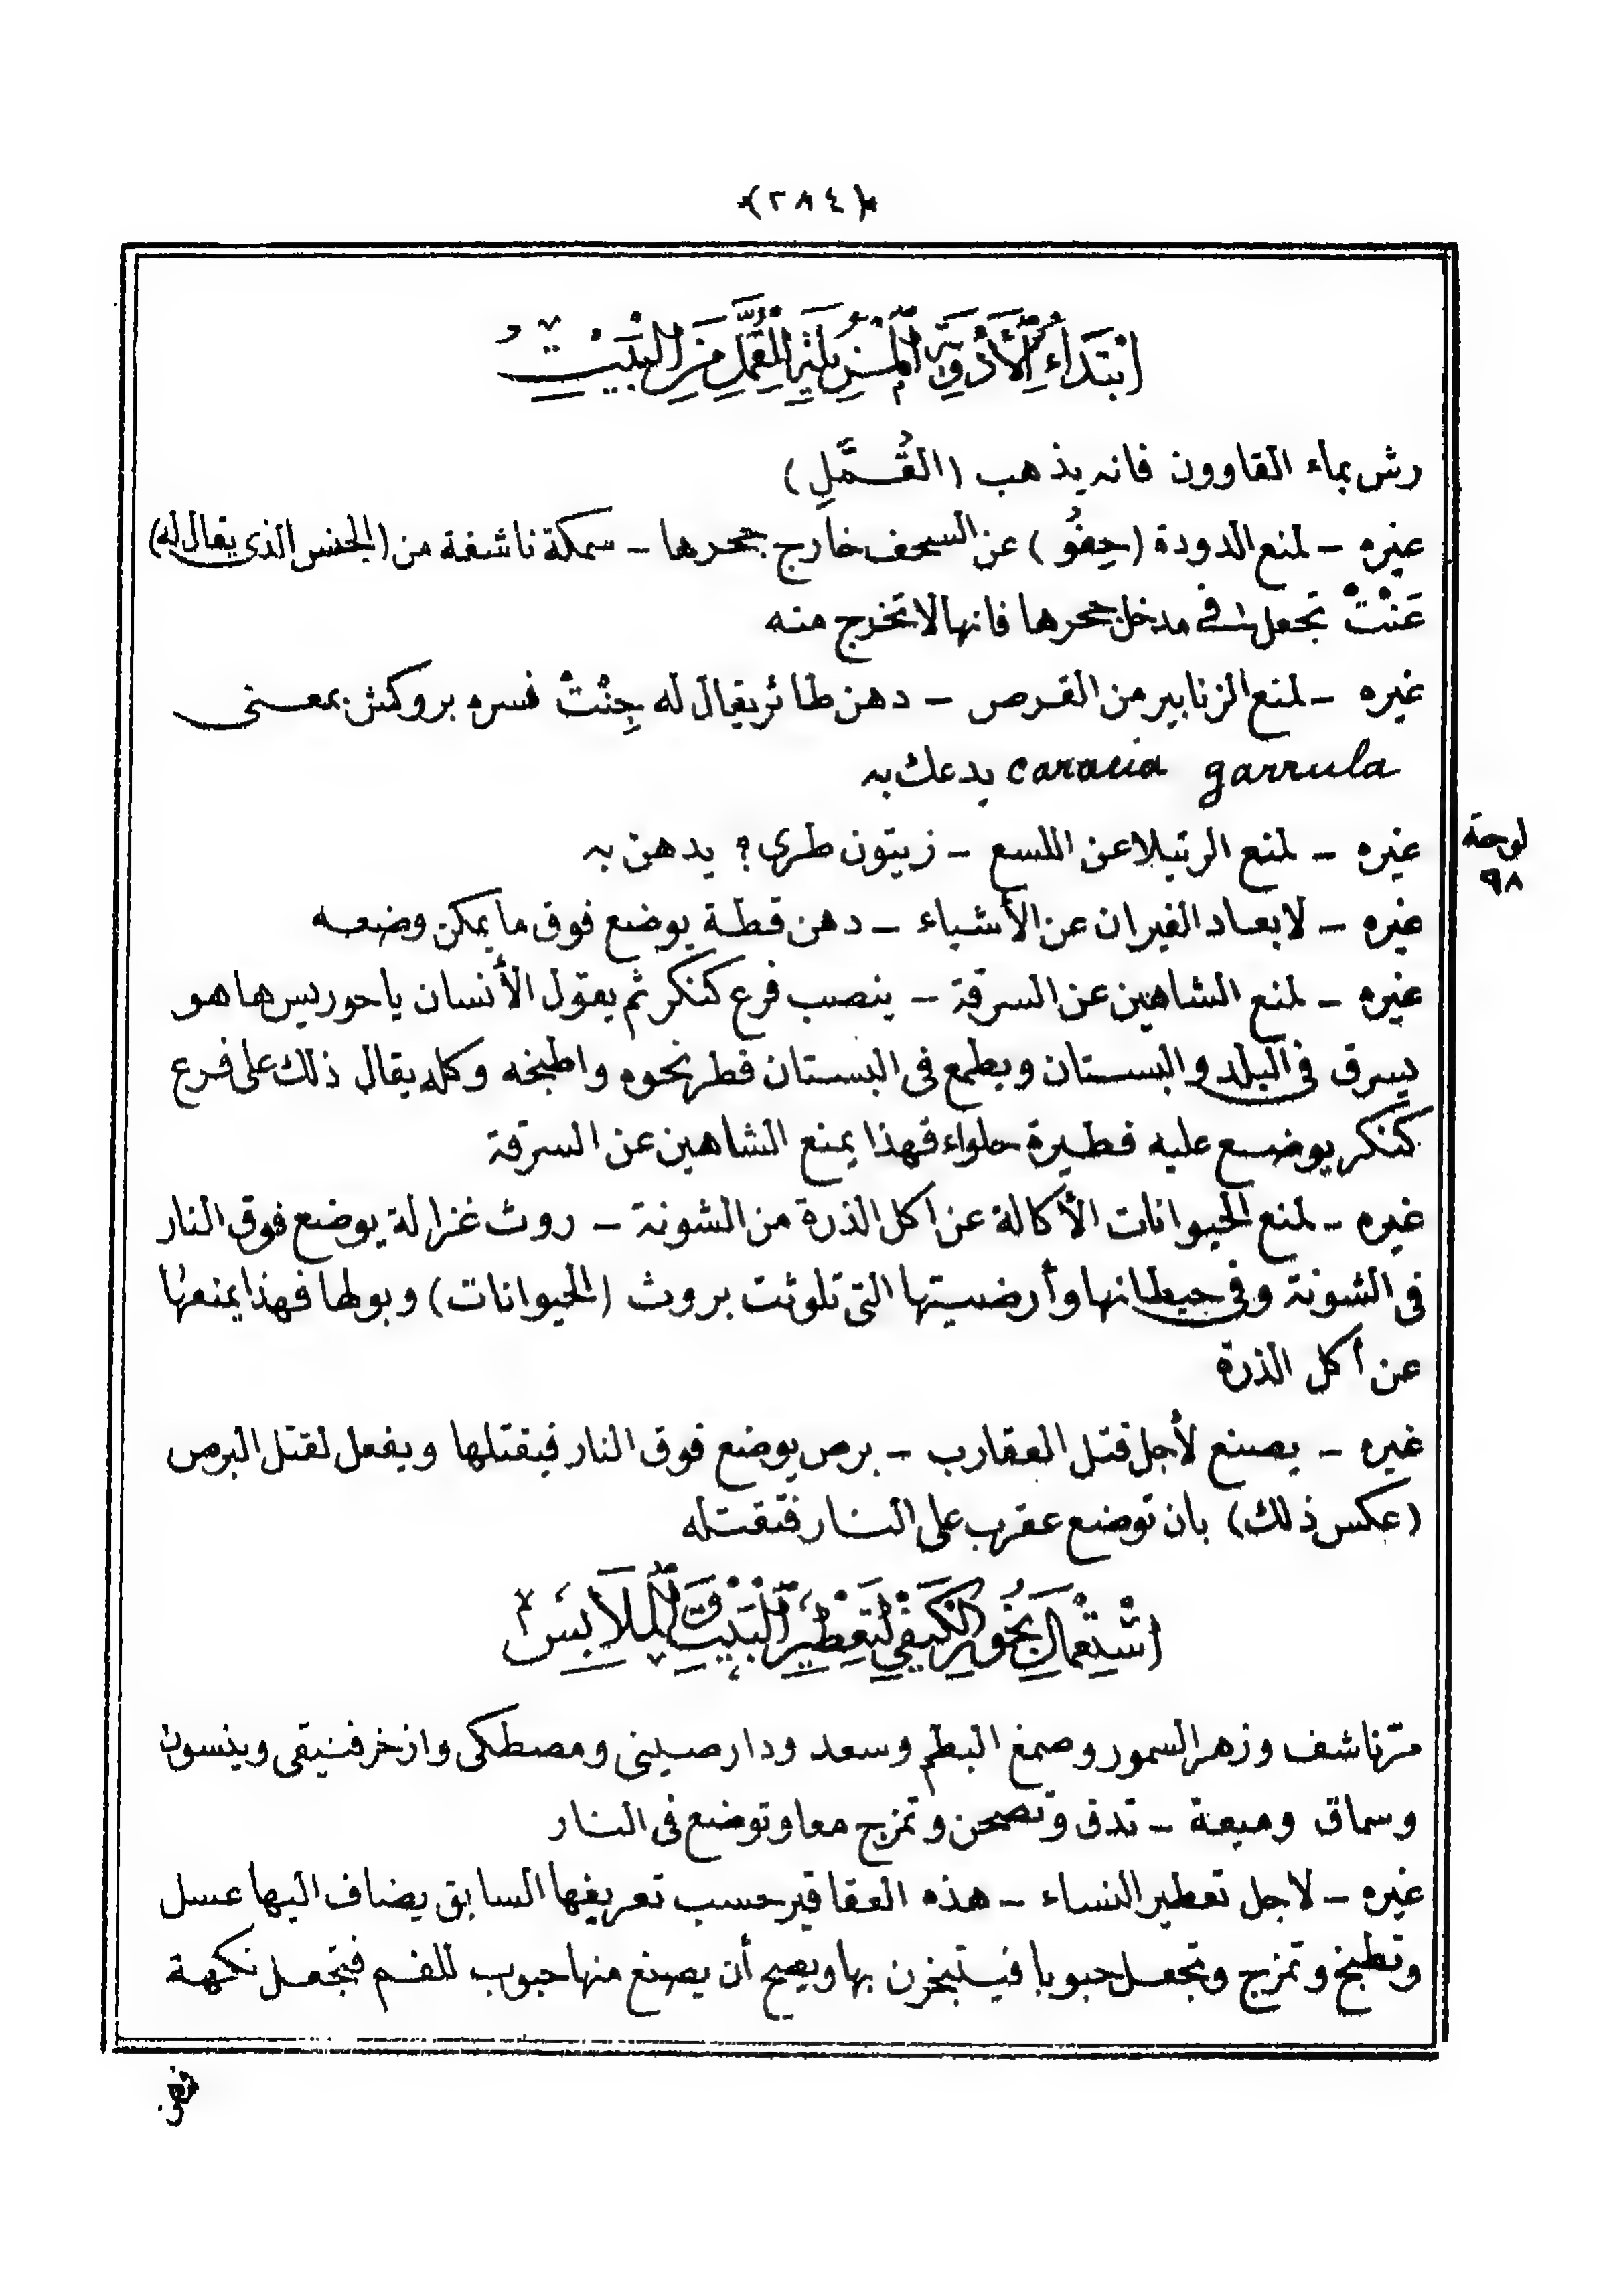 *(٢٨٤)*
ابْتَدَاءُ الْأَدْوِيَةِ الْمُزِيلَةِ لِلْقُمَّلِ مِنَ الْبَيْتِ
رش بماء القاوون فانه يذهب (القُـمَّلِ)
غيره – لمنع الدودة (حِفُو) عن السحف خارج جحرها – سمكة ناشفة من (الجنس الذى يقال له)
عَنْتْ تجعل فى مدخل جحرها فانها لا تخرج منه
غيره – لمنع الزنابير من القرص – دهن طائر يقال له جِنْتْ فسره بروكش بمعـنى
garrula caracia يدعك به
غيره – لمنع الرتيلا عن اللسع – زيتون طرى ؟ يدهن به
غيره – لابعاد الفيران عن الأشياء – دهن قطة يوضع فوق ما يمكن وضعه
غيره – لمنع الشاهين عن السرقة – ينصب فرع كنكر ثم يقول الأنسان يا حوريس ها هو
يسرق فى البلد والبستان ويطمع فى البستان فطر نحوه واطبخه وكله يقال ذلك على فرع
كنكر يوضع عليه فطيرة حلواء فهذا يمنع الشاهين عن السرقة
غيره – لمنع الحيوانات الأكالة عن اكل الذرة من الشونة – روث غزالة يوضع فوق النار
فى الشونة وفى حيطانها وأرضيتها التى تلوثت بروث (الحيوانات) وبولها فهذا يمنعها
عن أكل الذرة
غيره – يصنع لأجل قتل العقارب – برص يوضع فوق النار فيقتلها ويفعل لقتل البرص
(عكس ذلك) بان توضع عقرب على النار فتقتله
اسْتِعْمَالُ بَخُورِ الْكَيْفِي لِتَعْطِيرِ الْبَيْتِ وَالْمَلَابِسِ
مرّ ناشف وزهر السمور وصمغ البطم وسعد ودارصينى ومصطكى واذخر فنيقى وينسون
وسماق وميعة – تدق وتصحن وتمزج معا وتوضع فى النار
غيره – لاجل تعطير النساء – هذه العقاقير حسب تعريفها السابق يضاف اليها عسل
وتطبخ وتمزج وتجعل حبوبا فيتبخرن بها ويصح أن يصنع منها حبوب للفم فتجعل نكهة
لوحة
٩٨